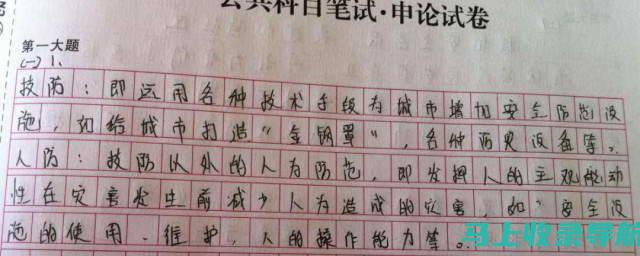 公共科目笔试·申论试卷
第一大题
(一) 1、
技防：即运用各种技术手段为城市增加安全防范设
施，如给城市打造“金钢罩”，各种硬设备等。
人防：技防以外的人为防范，即发挥人的主观能动
性在灾害发生前减少人为造成的灾害，如“安全设
施的使用、维护，人的操作能力等。
马上收录导航